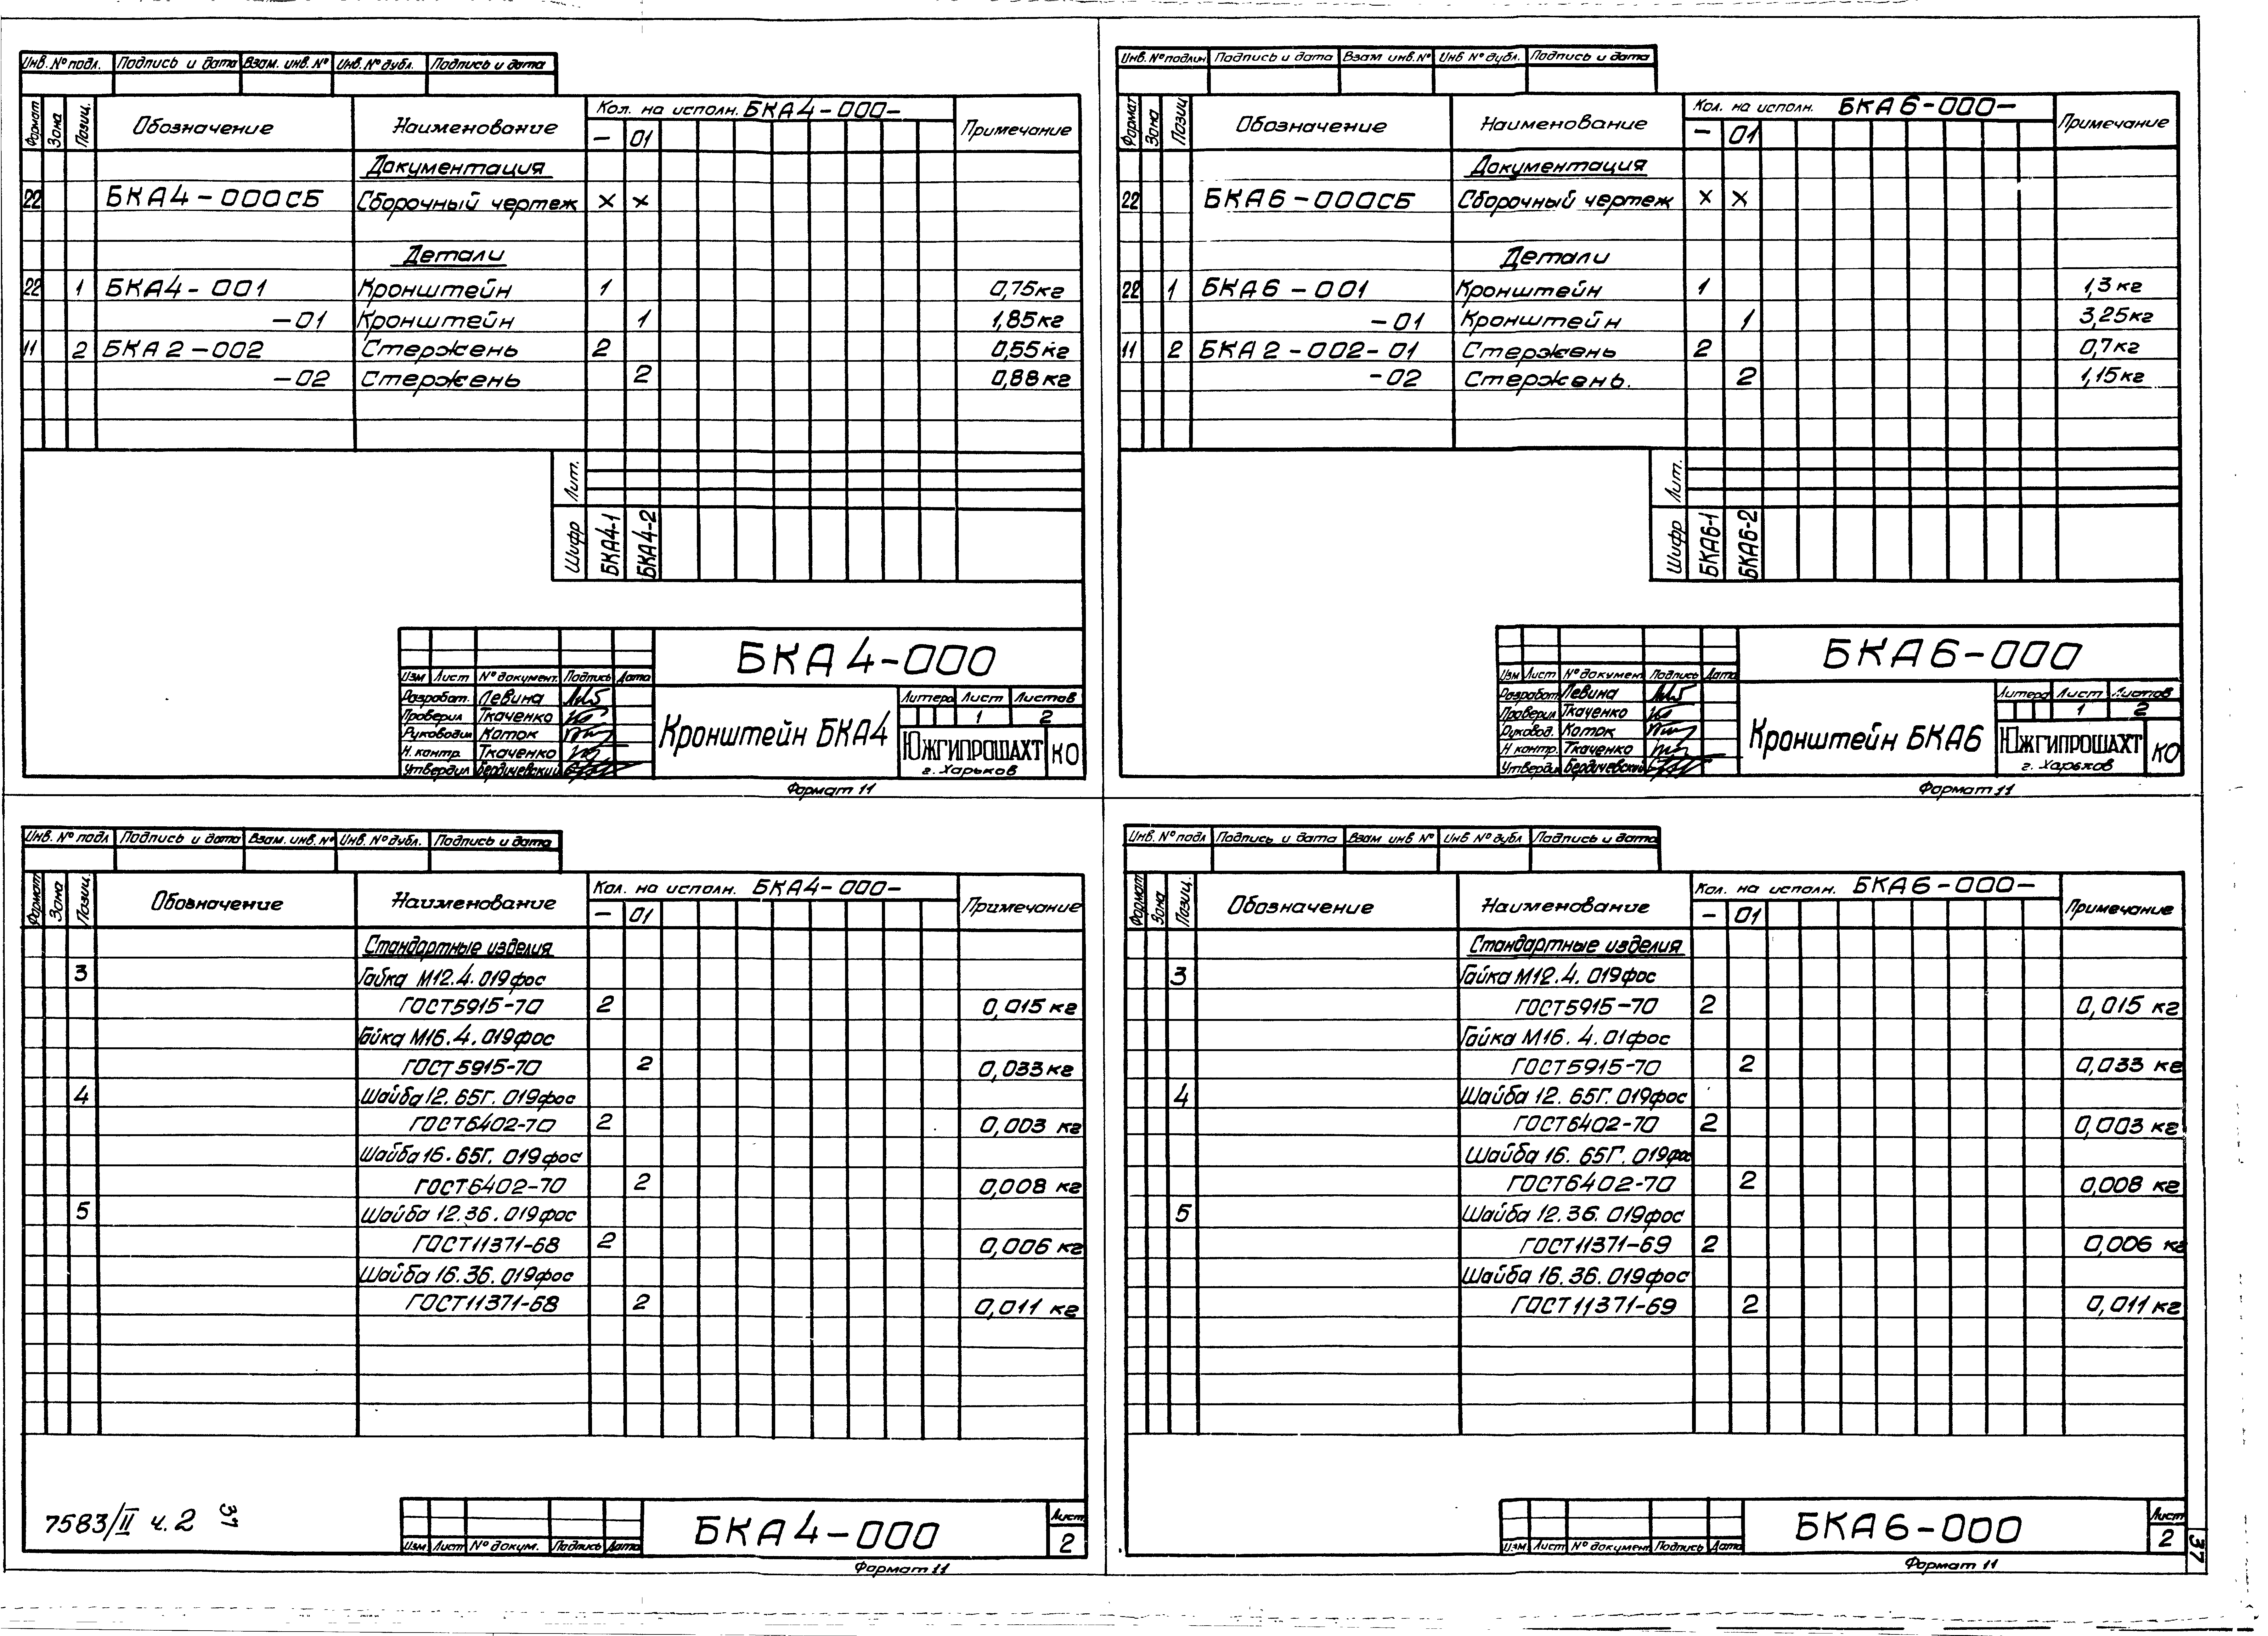 Инв. № подл. Подпись и дата Взам. инв. № Инв. № дубл. Подпись и дата
Формат Зона Позиц. Обозначение Наименование Кол. на исполн. БКА4-000- Примечание
- 01
Документация
22 БКА4-000СБ Сборочный чертеж × ×
Детали
22 1 БКА4-001 Кронштейн 1 0,75кг
-01 Кронштейн 1 1,85кг
11 2 БКА2-002 Стержень 2 0,55кг
-02 Стержень 2 0,88кг
Лит.
Шифр БКА4-1 БКА4-2
БКА4-000
Изм Лист № документ. Подпись Дата
Разработ. Левина
Проверил Ткаченко
Руководил Коток
Н. контр. Ткаченко
Утвердил Бердичевский
Кронштейн БКА4
Литера Лист Листов
1 2
ЮЖГИПРОШАХТ КО
г. Харьков
Формат 11
Инв. № подлин Подпись и дата Взам инв. № Инв № дубл. Подпись и дата
Формат Зона Позиц Обозначение Наименование Кол. на исполн. БКА6-000- Примечание
- 01
Документация
22 БКА6-000СБ Сборочный чертеж × ×
Детали
22 1 БКА6-001 Кронштейн 1 1,3 кг
-01 Кронштейн 1 3,25кг
11 2 БКА2-002-01 Стержень 2 0,7кг
-02 Стержень. 2 1,15кг
Лит.
Шифр БКА6-1 БКА6-2
БКА6-000
Изм Лист № документ Подпись Дата
Разработ Левина
Проверил Ткаченко
Руковод. Коток
Н контр. Ткаченко
Утвердил Бердичевский
Кронштейн БКА6
Литера Лист Листов
1 2
ЮЖГИПРОШАХТ КО
г. Харьков
Формат 11
Инв. № подл Подпись и дата Взам. инв. № Инв. № дубл. Подпись и дата
Формат Зона Позиц. Обозначение Наименование Кол. на исполн. БКА4-000- Примечание
- 01
Стандартные изделия
3 Гайка М12.4.019фос
ГОСТ5915-70 2 0,015 кг
Гайка М16.4.019фос
ГОСТ5915-70 2 0,033кг
4 Шайба 12.65Г.019фос
ГОСТ6402-70 2 0,003 кг
Шайба 16.65Г.019фос
ГОСТ6402-70 2 0,008 кг
5 Шайба 12.36.019фос
ГОСТ11371-68 2 0,006 кг
Шайба 16.36.019фос
ГОСТ11371-68 2 0,011 кг
7583/II ч.2 37
Изм Лист № докум. Подпись Дата
БКА4-000
Лист
2
Формат 11
Инв. № подл Подпись и дата Взам инв № Инв № дубл Подпись и дата
Формат Зона Позиц. Обозначение Наименование Кол. на исполн. БКА6-000- Примечание
- 01
Стандартные изделия
3 Гайка М12.4.019фос
ГОСТ5915-70 2 0,015 кг
Гайка М16.4.01фос
ГОСТ5915-70 2 0,033 кг
4 Шайба 12.65Г.019фос
ГОСТ6402-70 2 0,003 кг
Шайба 16.65Г.019фос
ГОСТ6402-70 2 0,008 кг
5 Шайба 12.36.019фос
ГОСТ11371-69 2 0,006 кг
Шайба 16.36.019фос
ГОСТ11371-69 2 0,011 кг
Изм Лист № документ Подпись Дата
БКА6-000
Лист
2
37
Формат 11